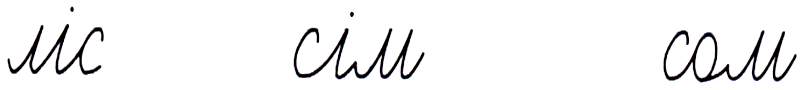 міс сім сом